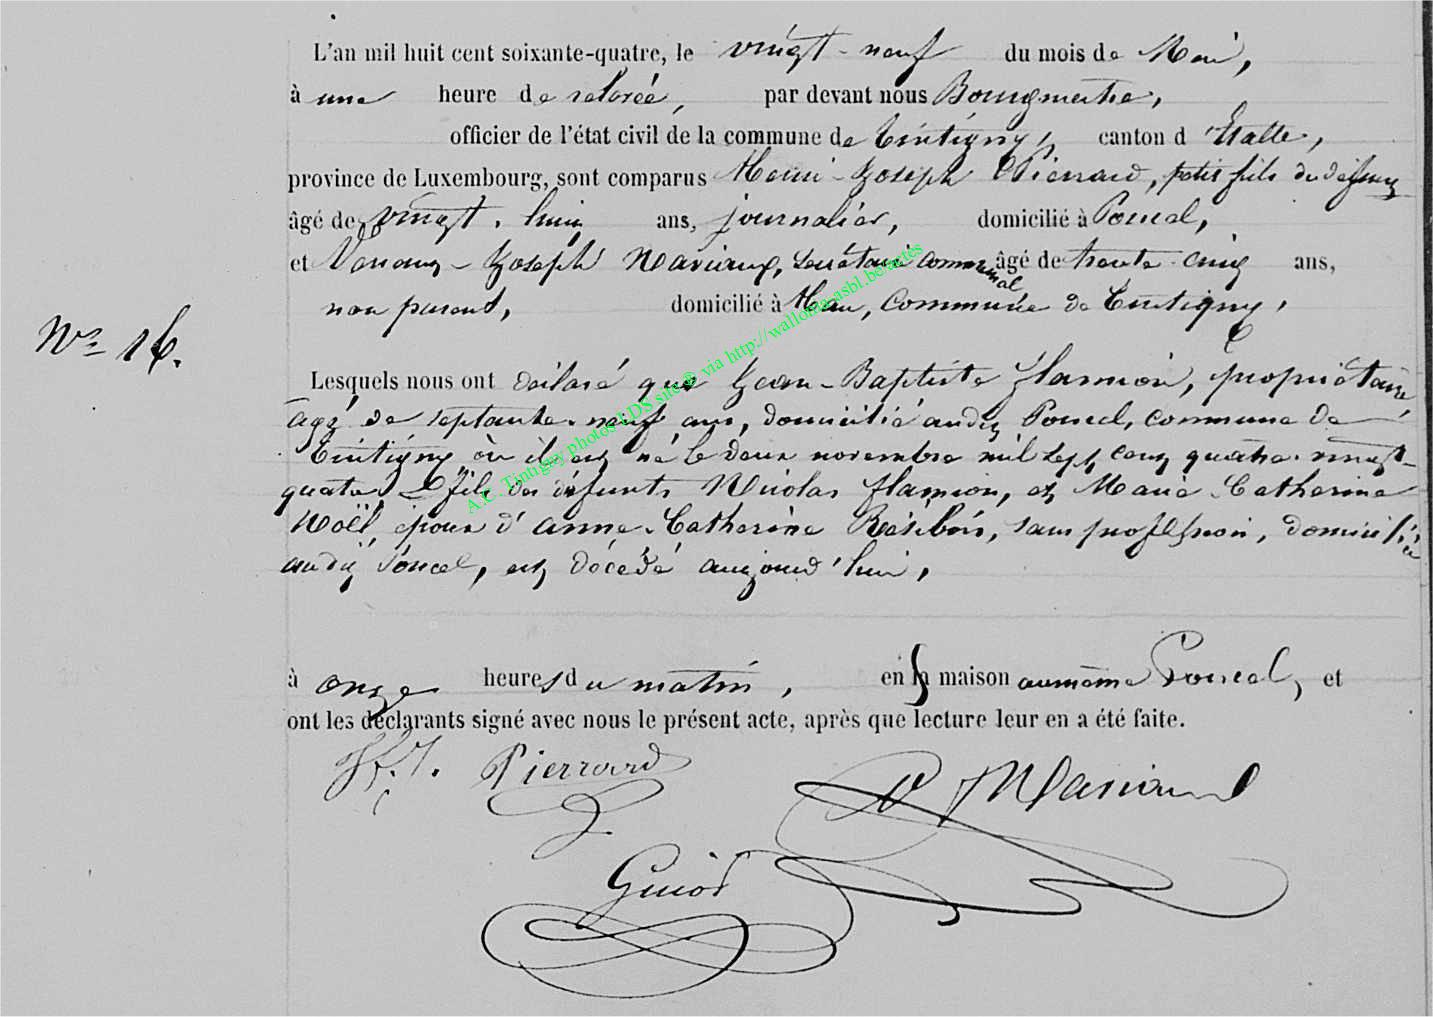 L'an mil huit cent soixante-quatre, le vingt-neuf du mois de Mai,
à une heure de relevée, par devant nous Bourgmestre,
officier de l'état civil de la commune de Tintigny, canton d'Etalle,
province de Luxembourg, sont comparus Henri-Joseph Pierrard, petit fils du défunt
âgé de vingt-huit ans, journalier, domicilié à Poncel,
et Joseph Mariaux, secrétaire communal âgé de trente-cinq ans,
non parent, domicilié à Han, commune de Tintigny,
N° 16.
Lesquels nous ont déclaré que Jean-Baptiste Flamion, propriétaire,
âgé de septante-neuf ans, domicilié audit Poncel, commune de
Tintigny où il est né le deux novembre mil sept cent quatre-vingt-
quatre, fils des défunts Nicolas Flamion, et Marie-Catherine
Noël, époux d'anne-Catherine Résibois, sans profession, domiciliée
audit Poncel, est décédé aujourd'hui,
à onze heures du matin, en sa maison au même Poncel, et
ont les déclarants signé avec nous le présent acte, après que lecture leur en a été faite.
H. J. Pierrard Mariaux
Guiot
A.C. Tintigny photos LDS site® via http://wallonia-asbl.be/actes